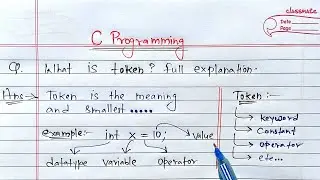 classmate
Date
Page
C Programming
Q. What is token? full explanation.
Ans → Token is the meaning
and smallest.....
example:- int x = 10; value
datatype variable operator
Token:-
keyword
Constant
operator
etc...